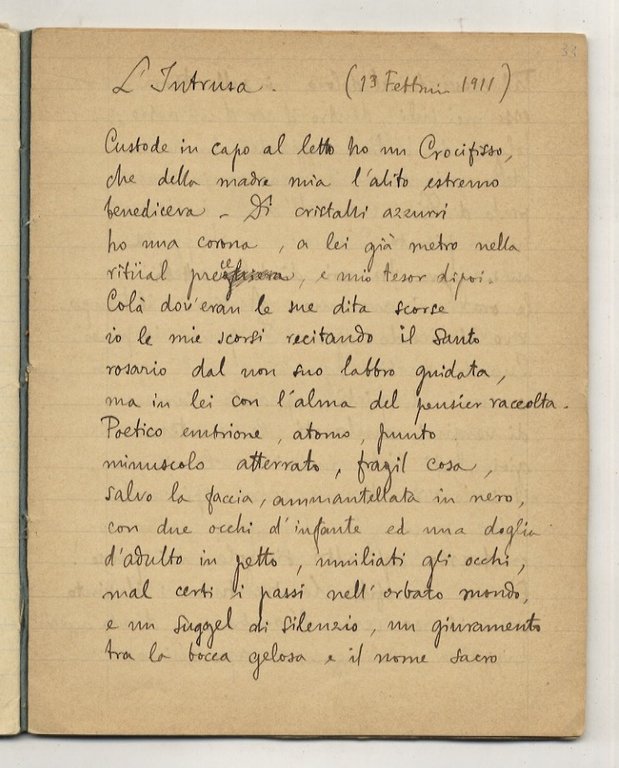 33
L'Intrusa. (13 Febbraio 1911)
Custode in capo al letto ho un Crocifisso,
che della madre mia l'alito estremo
benediceva - Di cristalli azzurri
ho una corona, a lei già metro nella
ritüal prece, e mio tesor dipoi.
Colà dov'eran le sue dita scorse
io le mie scorsi recitando il santo
rosario dal non suo labbro guidata,
ma in lei con l'alma del pensier raccolta.
Poetico embrione, atomo, punto
minuscolo atterrato, fragil cosa,
salvo la faccia, ammantellata in nero,
con due occhi d'infante ed una doglia
d'adulto in petto, umiliati gli occhi,
mal certi i passi nell'orbato mondo,
e un suggel di silenzio, un giuramento
tra la bocca gelosa e il nome sacro